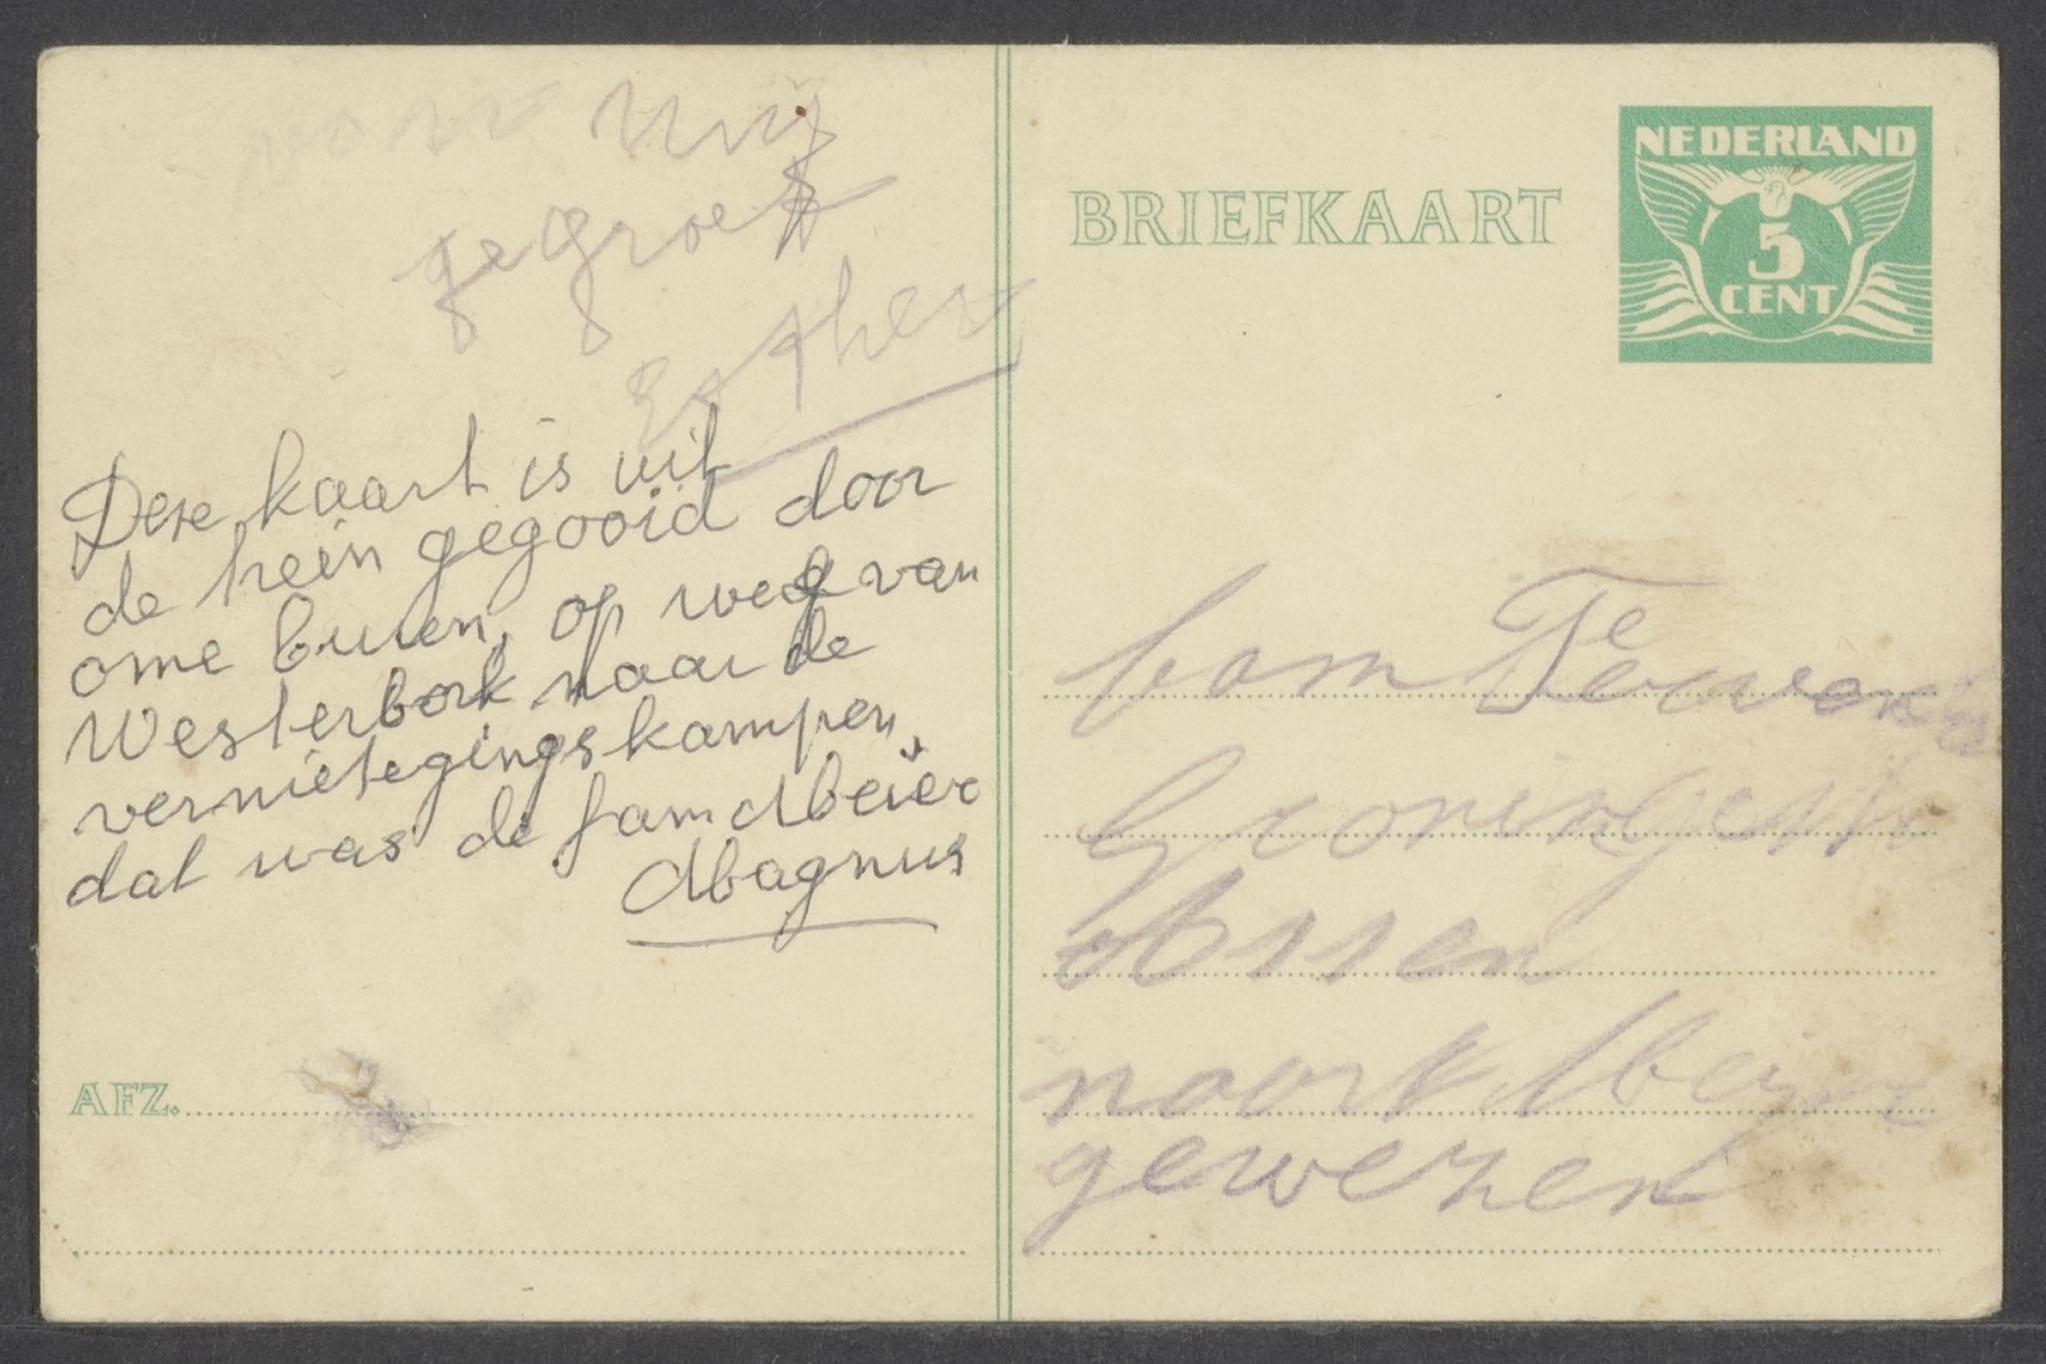 voor mij
gegroet
Esther
Deze kaart is uit
de trein gegooid door
ome buren, op weg van
Westerbork naar de
vernietegingskampen
dat was de fam Meier
Magnus
AFZ.
BRIEFKAART
NEDERLAND
5
CENT
fam
Groningerstr
Assen
naast
gewezen